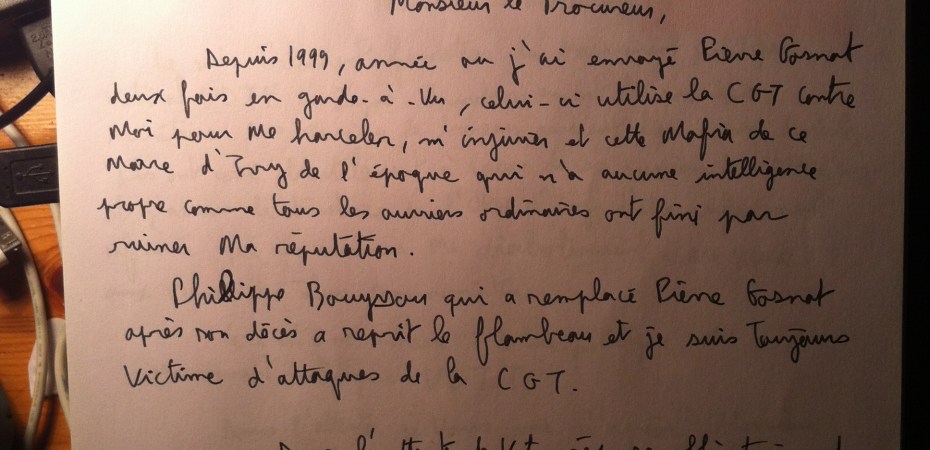 Monsieur le Procureur,
Depuis 1999, année ou j'ai envoyé Pierre Gosnat
deux fois en garde-à-vu, celui-ci utilise la CGT contre
moi pour me harceler, m'injurier et cette Mafia de ce
Maire d'Ivry de l'époque qui n'a aucune intelligence
propre comme tous les ouvriers ordinaires ont fini par
ruiner Ma réputation.
Philippe Bouyssou qui a remplacé Pierre Gosnat
après son décès a reprit le flambeau et je suis Toujours
Victime d'attaques de la CGT.